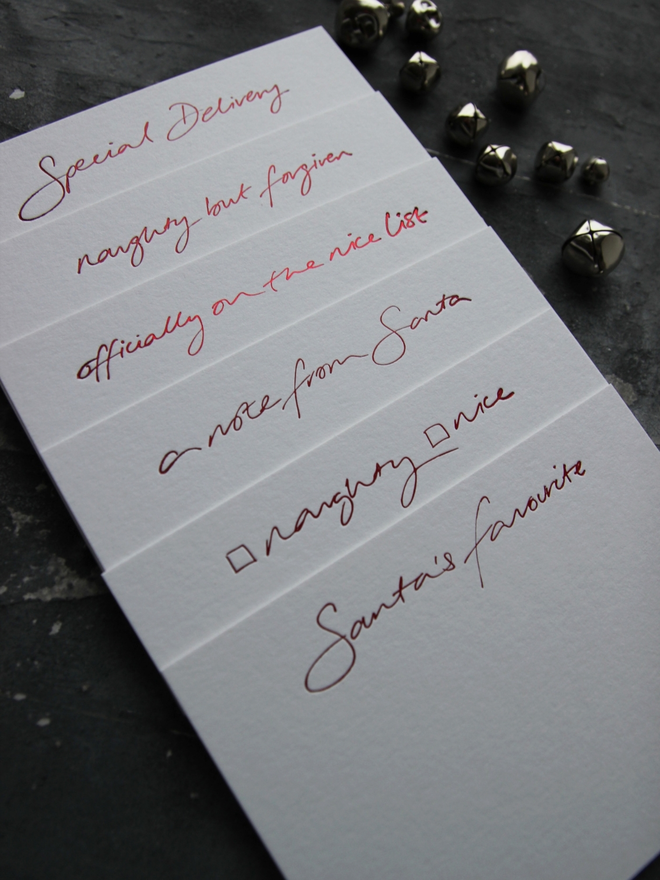 Special Delivery
naughty but forgiven
officially on the nice list
a note from Santa
☐ naughty ☐ nice
Santa's favourite